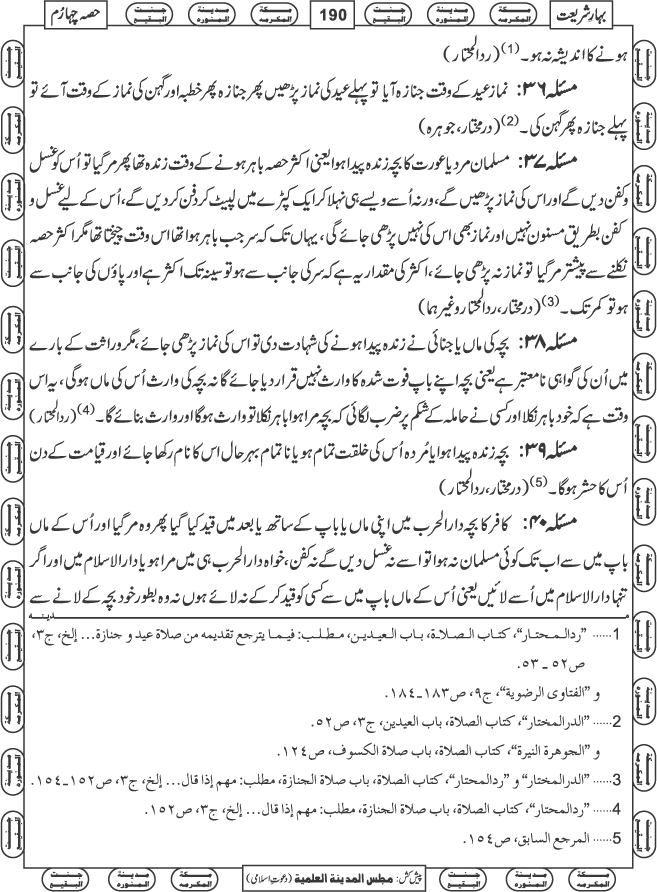 بہارِ شریعت
190
حصہ چہارُم
ہونے کا اندیشہ نہ ہو۔(1) (ردالمحتار)
مسئلہ ۳۶: نماز عید کے وقت جنازہ آیا تو پہلے عید کی نماز پڑھیں پھر جنازہ پھر خطبہ اور گہن کی نماز کے وقت آئے تو
پہلے جنازہ پھر گہن کی۔(2) (درمختار، جوہرہ)
مسئلہ ۳۷: مسلمان مرد یا عورت کا بچہ زندہ پیدا ہوا یعنی اکثر حصہ باہر ہونے کے وقت زندہ تھا پھر مر گیا تو اُس کو غسل
و کفن دیں گے اور اس کی نماز پڑھیں گے، ورنہ اُسے ویسے ہی نہلا کر ایک کپڑے میں لپیٹ کر دفن کر دیں گے، اُس کے لیے غسل و
کفن بطریق مسنون نہیں اور نماز بھی اس کی نہیں پڑھی جائے گی، یہاں تک کہ سر جب باہر ہوا تھا اس وقت چیختا تھا مگر اکثر حصہ
نکلنے سے پیشتر مر گیا تو نماز نہ پڑھی جائے، اکثر کی مقدار یہ ہے کہ سر کی جانب سے ہو تو سینہ تک اکثر ہے اور پاؤں کی جانب سے
ہو تو کمر تک۔(3) (درمختار، ردالمحتار وغیرہما)
مسئلہ ۳۸: بچہ کی ماں یا جنائی نے زندہ پیدا ہونے کی شہادت دی تو اس کی نماز پڑھی جائے، مگر وراثت کے بارے
میں اُن کی گواہی نامعتبر ہے یعنی بچہ اپنے باپ فوت شدہ کا وارث نہیں قرار دیا جائے گا نہ بچہ کی وارث اُس کی ماں ہوگی، یہ اس
وقت ہے کہ خود باہر نکلا اور کسی نے حاملہ کے شکم پر ضرب لگائی کہ بچہ مرا ہوا باہر نکلا تو وارث ہوگا اور وارث بنائے گا۔(4) (ردالمحتار)
مسئلہ ۳۹: بچہ زندہ پیدا ہوا یا مُردہ اُس کی خلقت تمام ہو یا نا تمام بہرحال اس کا نام رکھا جائے اور قیامت کے دن
اُس کا حشر ہوگا۔(5) (درمختار، ردالمحتار)
مسئلہ ۴۰: کافر کا بچہ دارالحرب میں اپنی ماں یا باپ کے ساتھ یا بعد میں قید کیا گیا پھر وہ مر گیا اور اُس کے ماں
باپ میں سے اب تک کوئی مسلمان نہ ہوا تو اسے نہ غسل دیں گے نہ کفن، خواہ دارالحرب ہی میں مرا ہو یا دارالاسلام میں اور اگر
تنہا دارالاسلام میں اُسے لائیں یعنی اُس کے ماں باپ میں سے کسی کو قید کر کے نہ لائے ہوں نہ وہ بطور خود بچہ کے لانے سے
1...... "ردالمحتار"، کتاب الصلاۃ، باب العیدین، مطلب: فیما یترجع تقدیمہ من صلاۃ عید و جنازۃ... إلخ، ج۳،
ص۵۲ ـ ۵۳.
و "الفتاوی الرضویۃ"، ج۹، ص۱۸۳ـ۱۸۴.
2...... "الدرالمختار"، کتاب الصلاۃ، باب العیدین، ج۳، ص۵۲.
و "الجوهرۃ النیرۃ"، کتاب الصلاۃ، باب صلاۃ الکسوف، ص۱۲۴.
3...... "الدرالمختار" و "ردالمحتار"، کتاب الصلاۃ، باب صلاۃ الجنازۃ، مطلب: مهم إذا قال... إلخ، ج۳، ص۱۵۲ـ۱۵۴.
4...... "ردالمحتار"، کتاب الصلاۃ، باب صلاۃ الجنازۃ، مطلب: مهم إذا قال... إلخ، ج۳، ص۱۵۲.
5...... المرجع السابق، ص۱۵۴.
پیش کش: مجلس المدینة العلمیة (دعوتِ اسلامی)